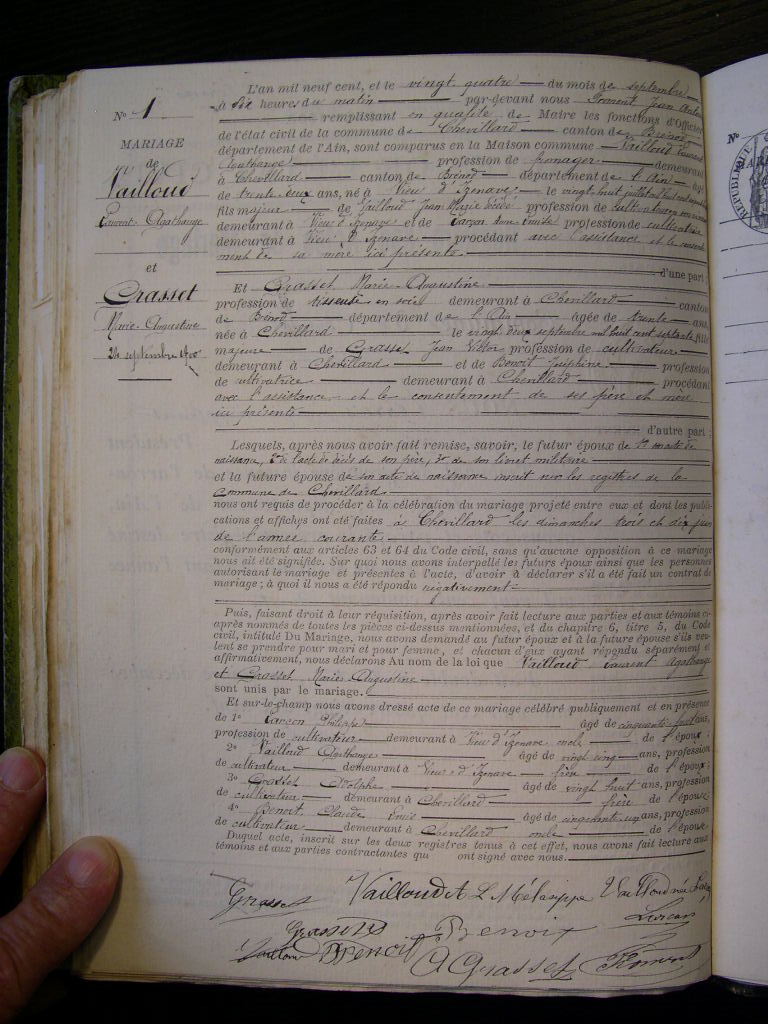 L'an mil neuf cent, et le vingt quatre du mois de septembre
à six heures du matin par-devant nous Jean
remplissant en qualité de Maire les fonctions d'Officier
de l'état civil de la commune de Chevillard canton de Brénod
département de l'Ain, sont comparus en la Maison commune Vailloud Laurent
Agathange profession de fromager demeurant
à Chevillard canton de Brénod département de l'Ain âgé
de trente deux ans, né à Vieu d'Izenave le vingt huit juillet mil huit cent
fils majeur de Vailloud Jean Marie profession de cultivateur
demeurant à Vieu d'Izenave et de profession de cultivatrice
demeurant à Vieu d'Izenave procédant avec l'assistance et le consente-
ment de sa mère ici présente
d'une part ;
Et Grasset Marie-Augustine
profession de tisseuse en soie demeurant à Chevillard canton
de Brénod département de l'Ain âgée de trente ans,
née à Chevillard le vingt deux septembre mil huit cent septante fille
majeure de Grasset Jean Victor profession de cultivateur
demeurant à Chevillard et de Benoit Joséphine profession
de cultivatrice demeurant à Chevillard procédant
avec l'assistance et le consentement de ses père et mère
ici présents
d'autre part ;
Lesquels, après nous avoir fait remise, savoir, le futur époux de 1° son acte de
naissance, 2° de l'acte de décès de son père, 3° de son livret militaire
et la future épouse de son acte de naissance inscrit sur les registres de la
commune de Chevillard
nous ont requis de procéder à la célébration du mariage projeté entre eux et dont les publi-
cations et affiches ont été faites à Chevillard les dimanches trois et dix juin
de l'année courante
conformément aux articles 63 et 64 du Code civil, sans qu'aucune opposition à ce mariage
nous ait été signifiée. Sur quoi nous avons interpellé les futurs époux ainsi que les personnes
autorisant le mariage et présentes à l'acte, d'avoir à déclarer s'il a été fait un contrat de
mariage ; à quoi il nous a été répondu négativement
Puis, faisant droit à leur réquisition, après avoir fait lecture aux parties et aux témoins ci-
après nommés de toutes les pièces ci-dessus mentionnées, et du chapitre 6, titre 5, du Code
civil, intitulé Du Mariage, nous avons demandé au futur époux et à la future épouse s'ils veu-
lent se prendre pour mari et pour femme, et chacun d'eux ayant répondu séparément et
affirmativement, nous déclarons Au nom de la loi que Vailloud Laurent Agathange
et Grasset Marie Augustine
sont unis par le mariage.
Et sur-le-champ nous avons dressé acte de ce mariage célébré publiquement et en présence
de 1° Philippe âgé de cinquante ans,
profession de cultivateur demeurant à Vieu d'Izenave oncle de l'époux ;
2° Vailloud Agathange âgé de vingt cinq ans, profession
de cultivateur demeurant à Vieu d'Izenave frère de l'époux ;
3° Grasset Adolphe âgé de vingt huit ans, profession
de cultivateur demeurant à Chevillard frère de l'épouse ;
4° Benoit Claude Louis âgé de cinquante ans, profession
de cultivateur demeurant à Chevillard oncle de l'épouse.
Duquel acte, inscrit sur les deux registres tenus à cet effet, nous avons fait lecture aux
témoins et aux parties contractantes qui ont signé avec nous.
Grasset Vailloud A L Vailloud née
Grasset Benoit
Vailloud Benoit A Grasset
N° 1
MARIAGE
de
Vailloud
Laurent-Agathange
et
Grasset
Marie-Augustine
24 septembre 1900
N°
RÉPUBLIQUE